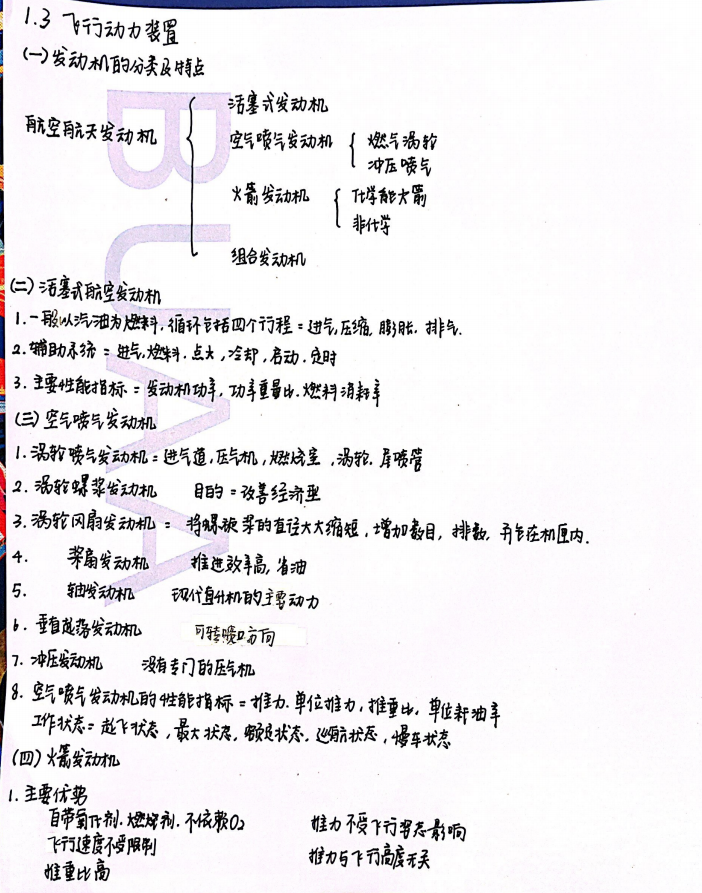 1.3 飞行动力装置
(一)发动机的分类及特点
航空航天发动机
活塞式发动机
空气喷气发动机
燃气涡轮
冲压喷气
火箭发动机
化学能火箭
非化学
组合发动机
(二)活塞式航空发动机
1.一般以汽油为燃料,循环包括四个行程=进气,压缩,膨胀,排气.
2.辅助系统=进气,燃料.点火,冷却,启动.定时
3.主要性能指标=发动机功率,功率重量比.燃料消耗率
(三)空气喷气发动机
1.涡轮喷气发动机=进气道,压气机,燃烧室,涡轮.尾喷管
2.涡轮螺桨发动机 目的=改善经济型
3.涡轮风扇发动机= 将螺旋桨的直径大大缩短,增加数目,排数,并包在机匣内.
4. 桨扇发动机 推进效率高,省油
5. 轴发动机 现代直升机的主要动力
6.垂直起落发动机 可转喷口方向
7.冲压发动机 没有专门的压气机
8.空气喷气发动机的性能指标=推力.单位推力,推重比,单位耗油率
工作状态=起飞状态,最大状态,额定状态,巡航状态,慢车状态
(四)火箭发动机
1.主要优势
自带氧化剂.燃烧剂.不依赖O2 推力不受飞行姿态影响
飞行速度不受限制 推力与飞行高度无关
推重比高
BUAA